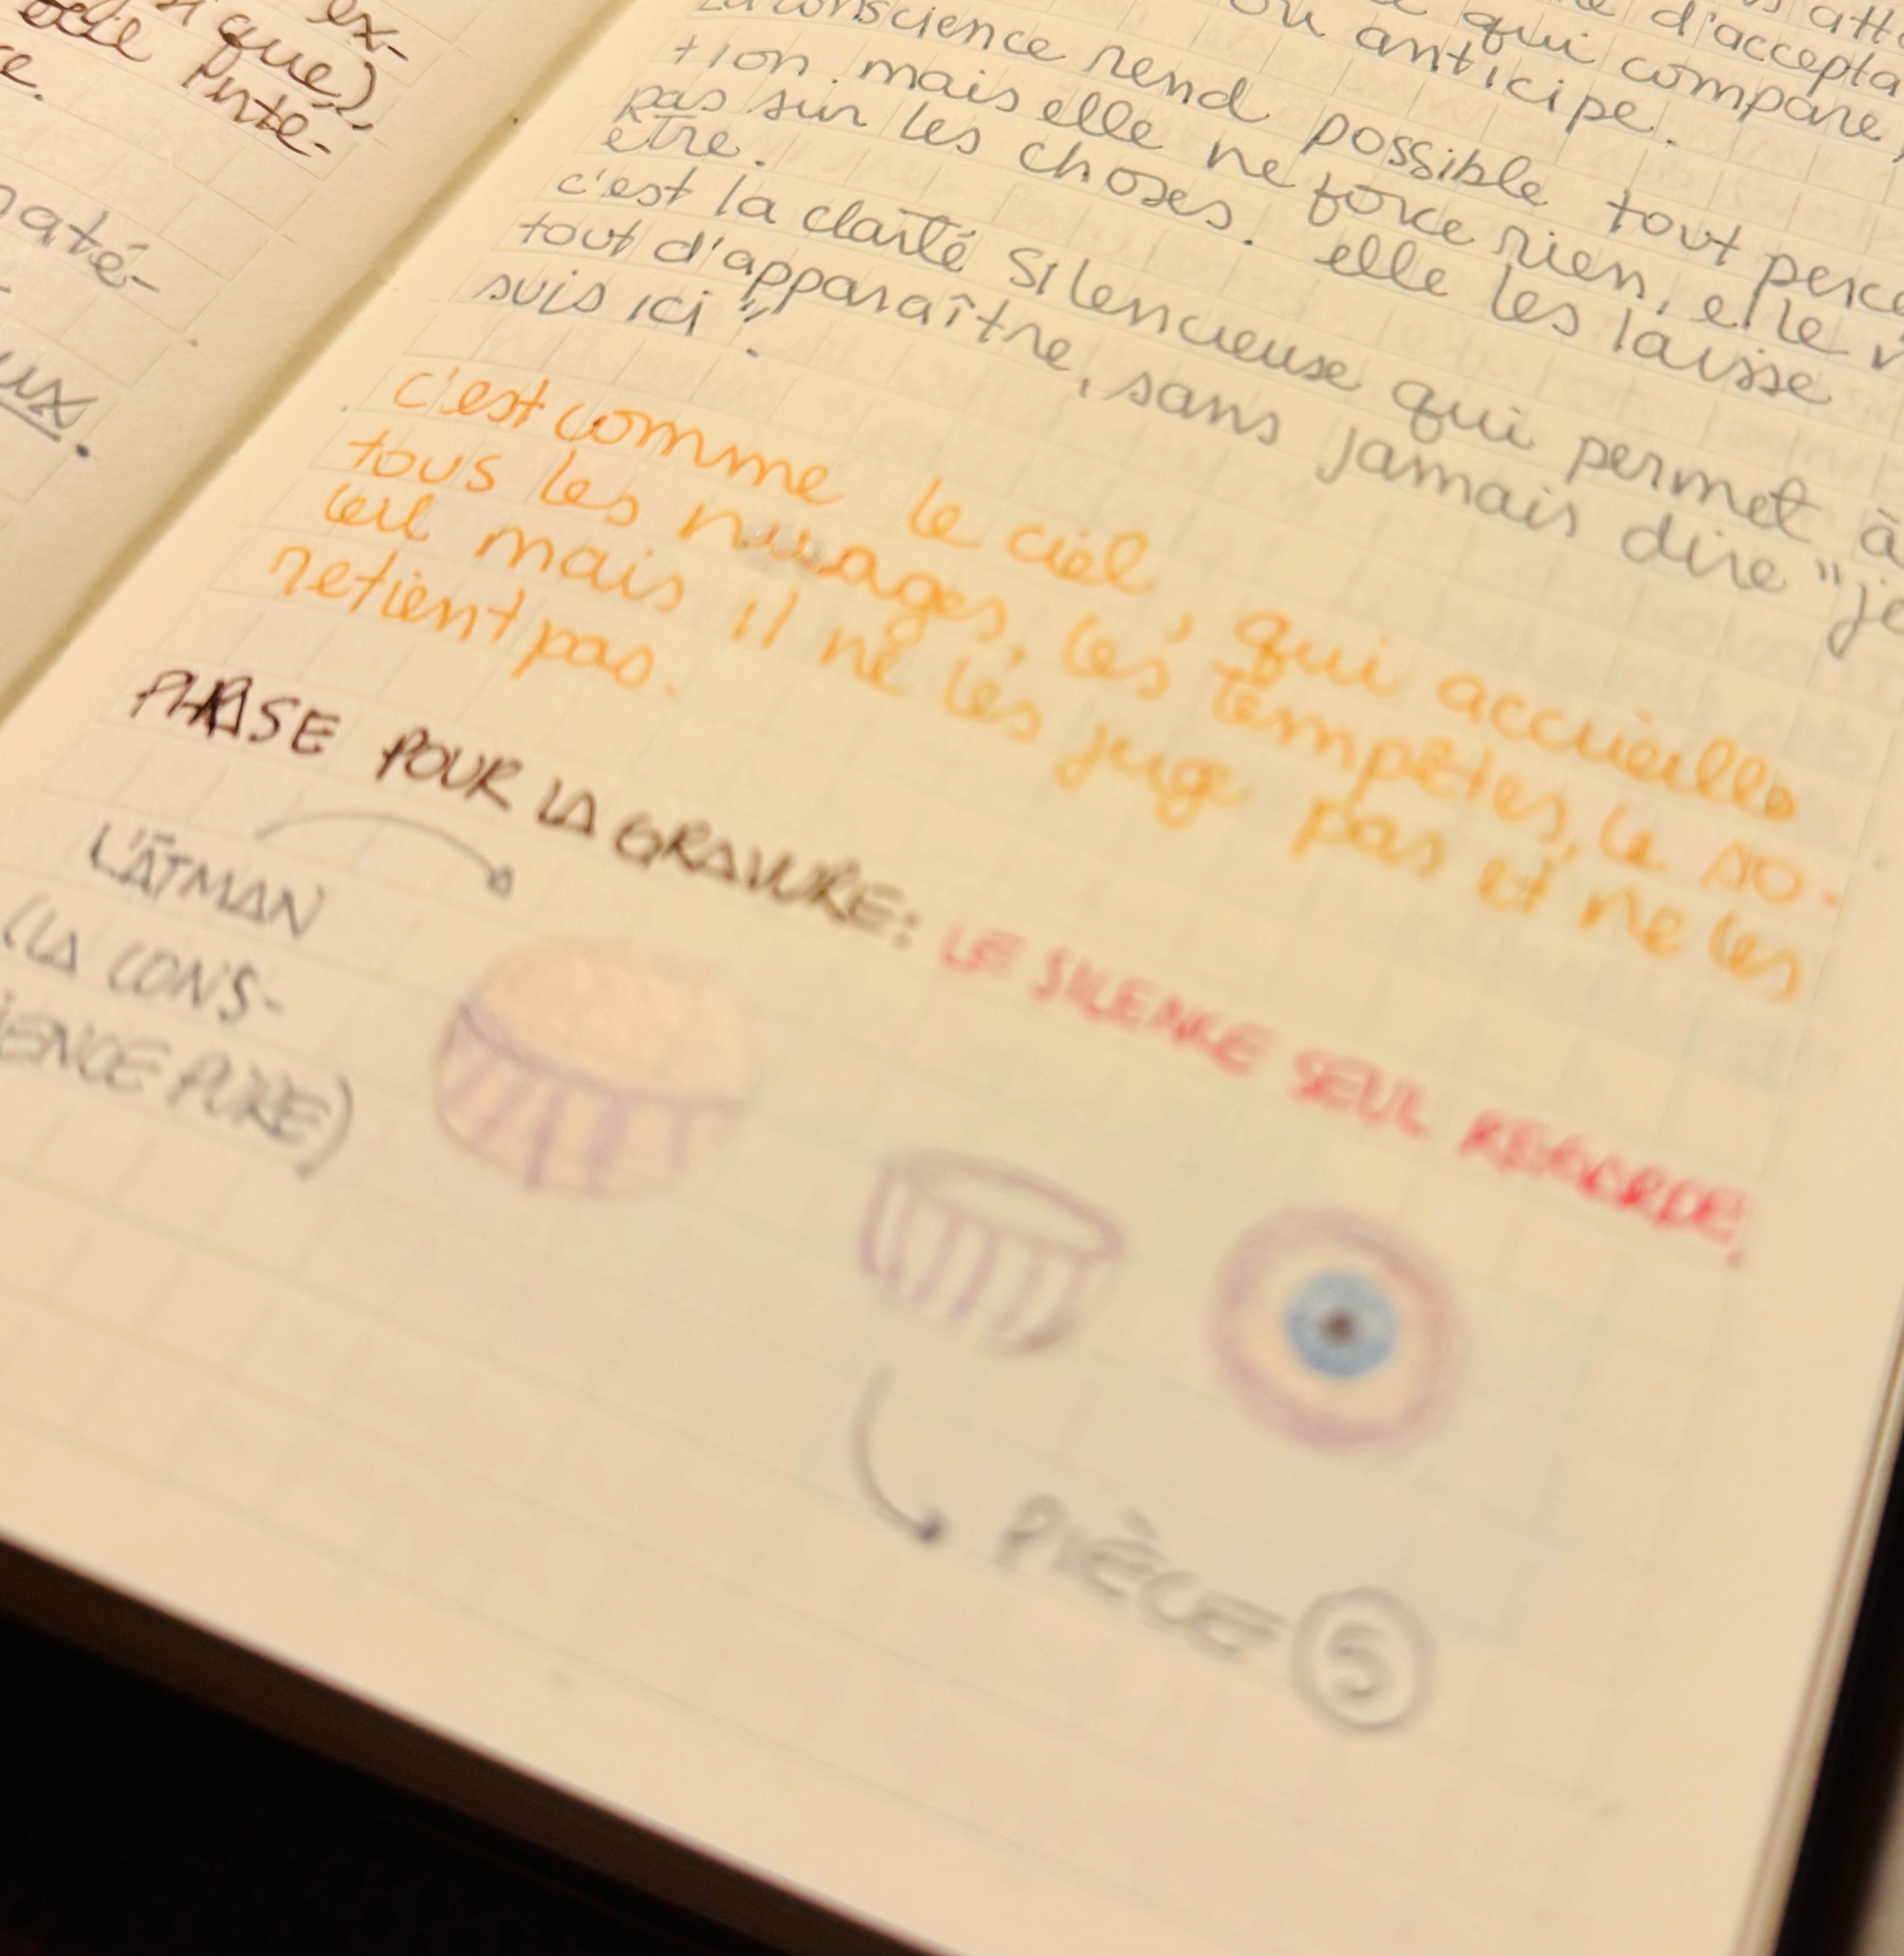 ex-
que),
inte-
e.
até-
ux.
att
d'accepta
qui compare,
ou anticipe.
La conscience rend possible tout perce
tion. mais elle ne force rien, elle
pas sur les choses. elle les laisse
être.
c'est la clarté silencieuse qui permet à
tout d'apparaître, sans jamais dire "je
suis ici".
c'est comme le ciel, qui accueille
tous les nuages, les tempêtes, le so-
leil mais il ne les juge pas et ne les
retient pas.
PHRASE POUR LA GRAVURE: LE SILENCE SEUL REGARDE,
L'ĀTMAN
(LA CONS-
IENCE PURE)
PIÈCE 5